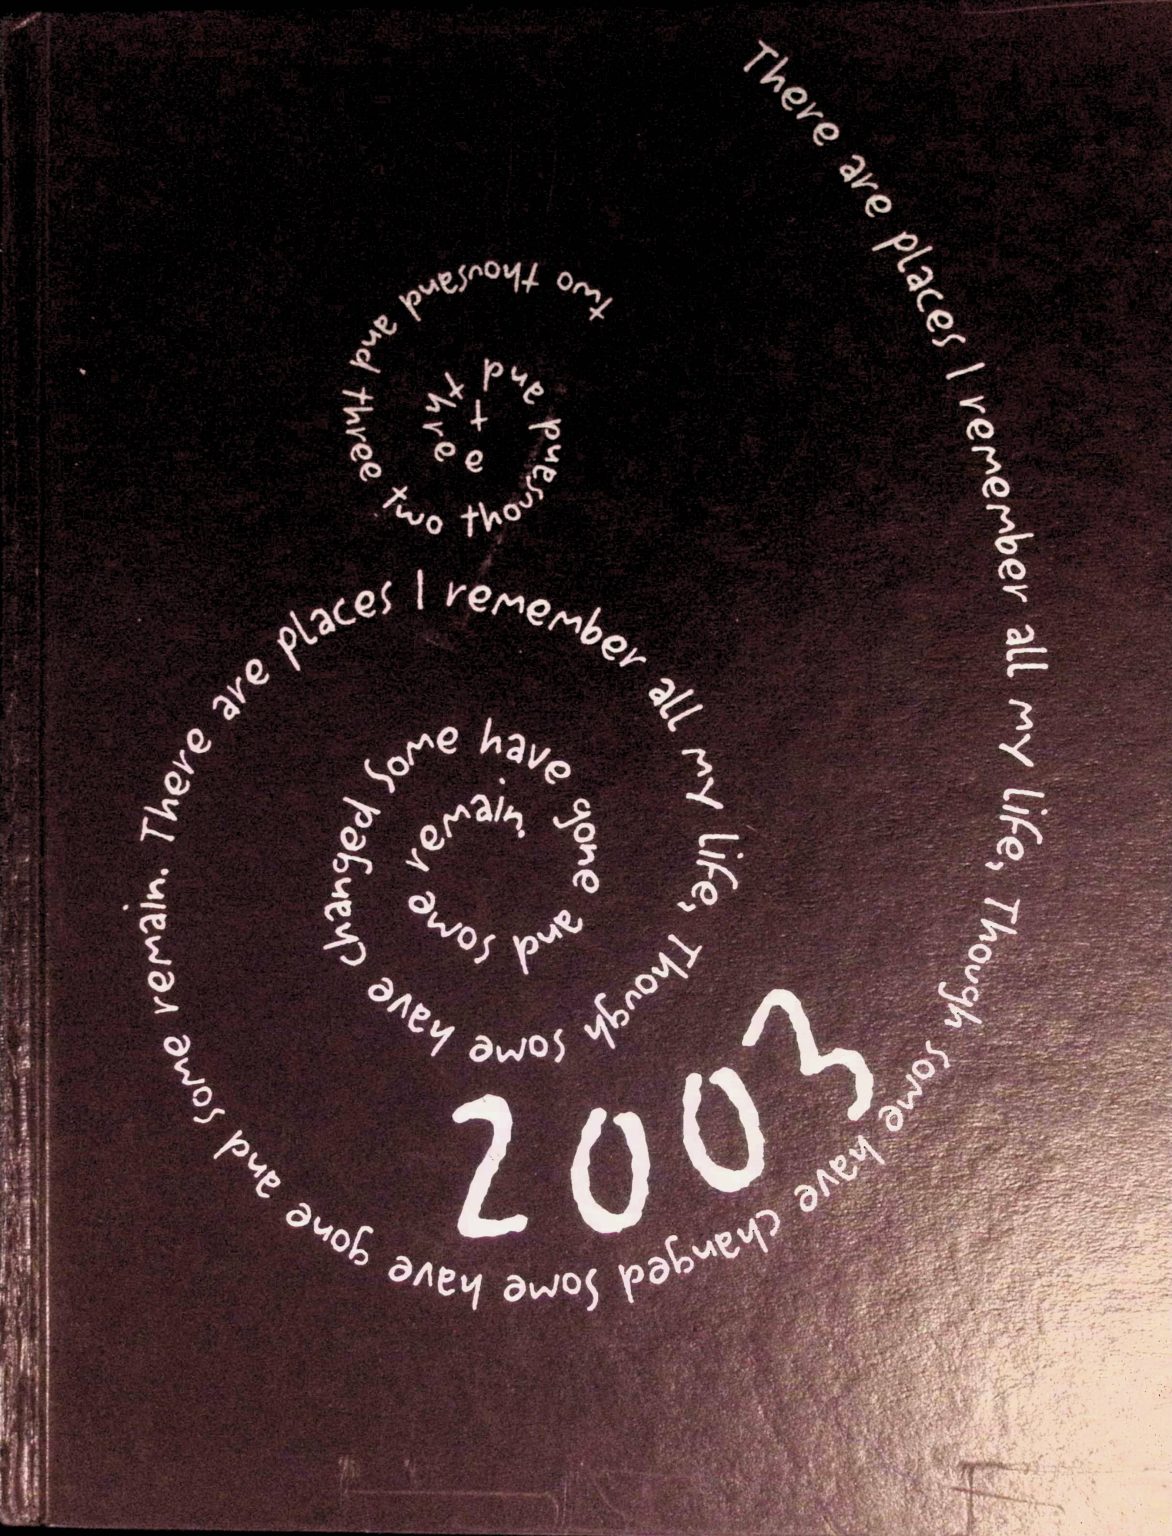 There are places I remember all my life, Though some have changed some have gone and some remain. There are places I remember all my life, Though some have changed some have gone and some remain.
two thousand and three two thousand and three t
2003